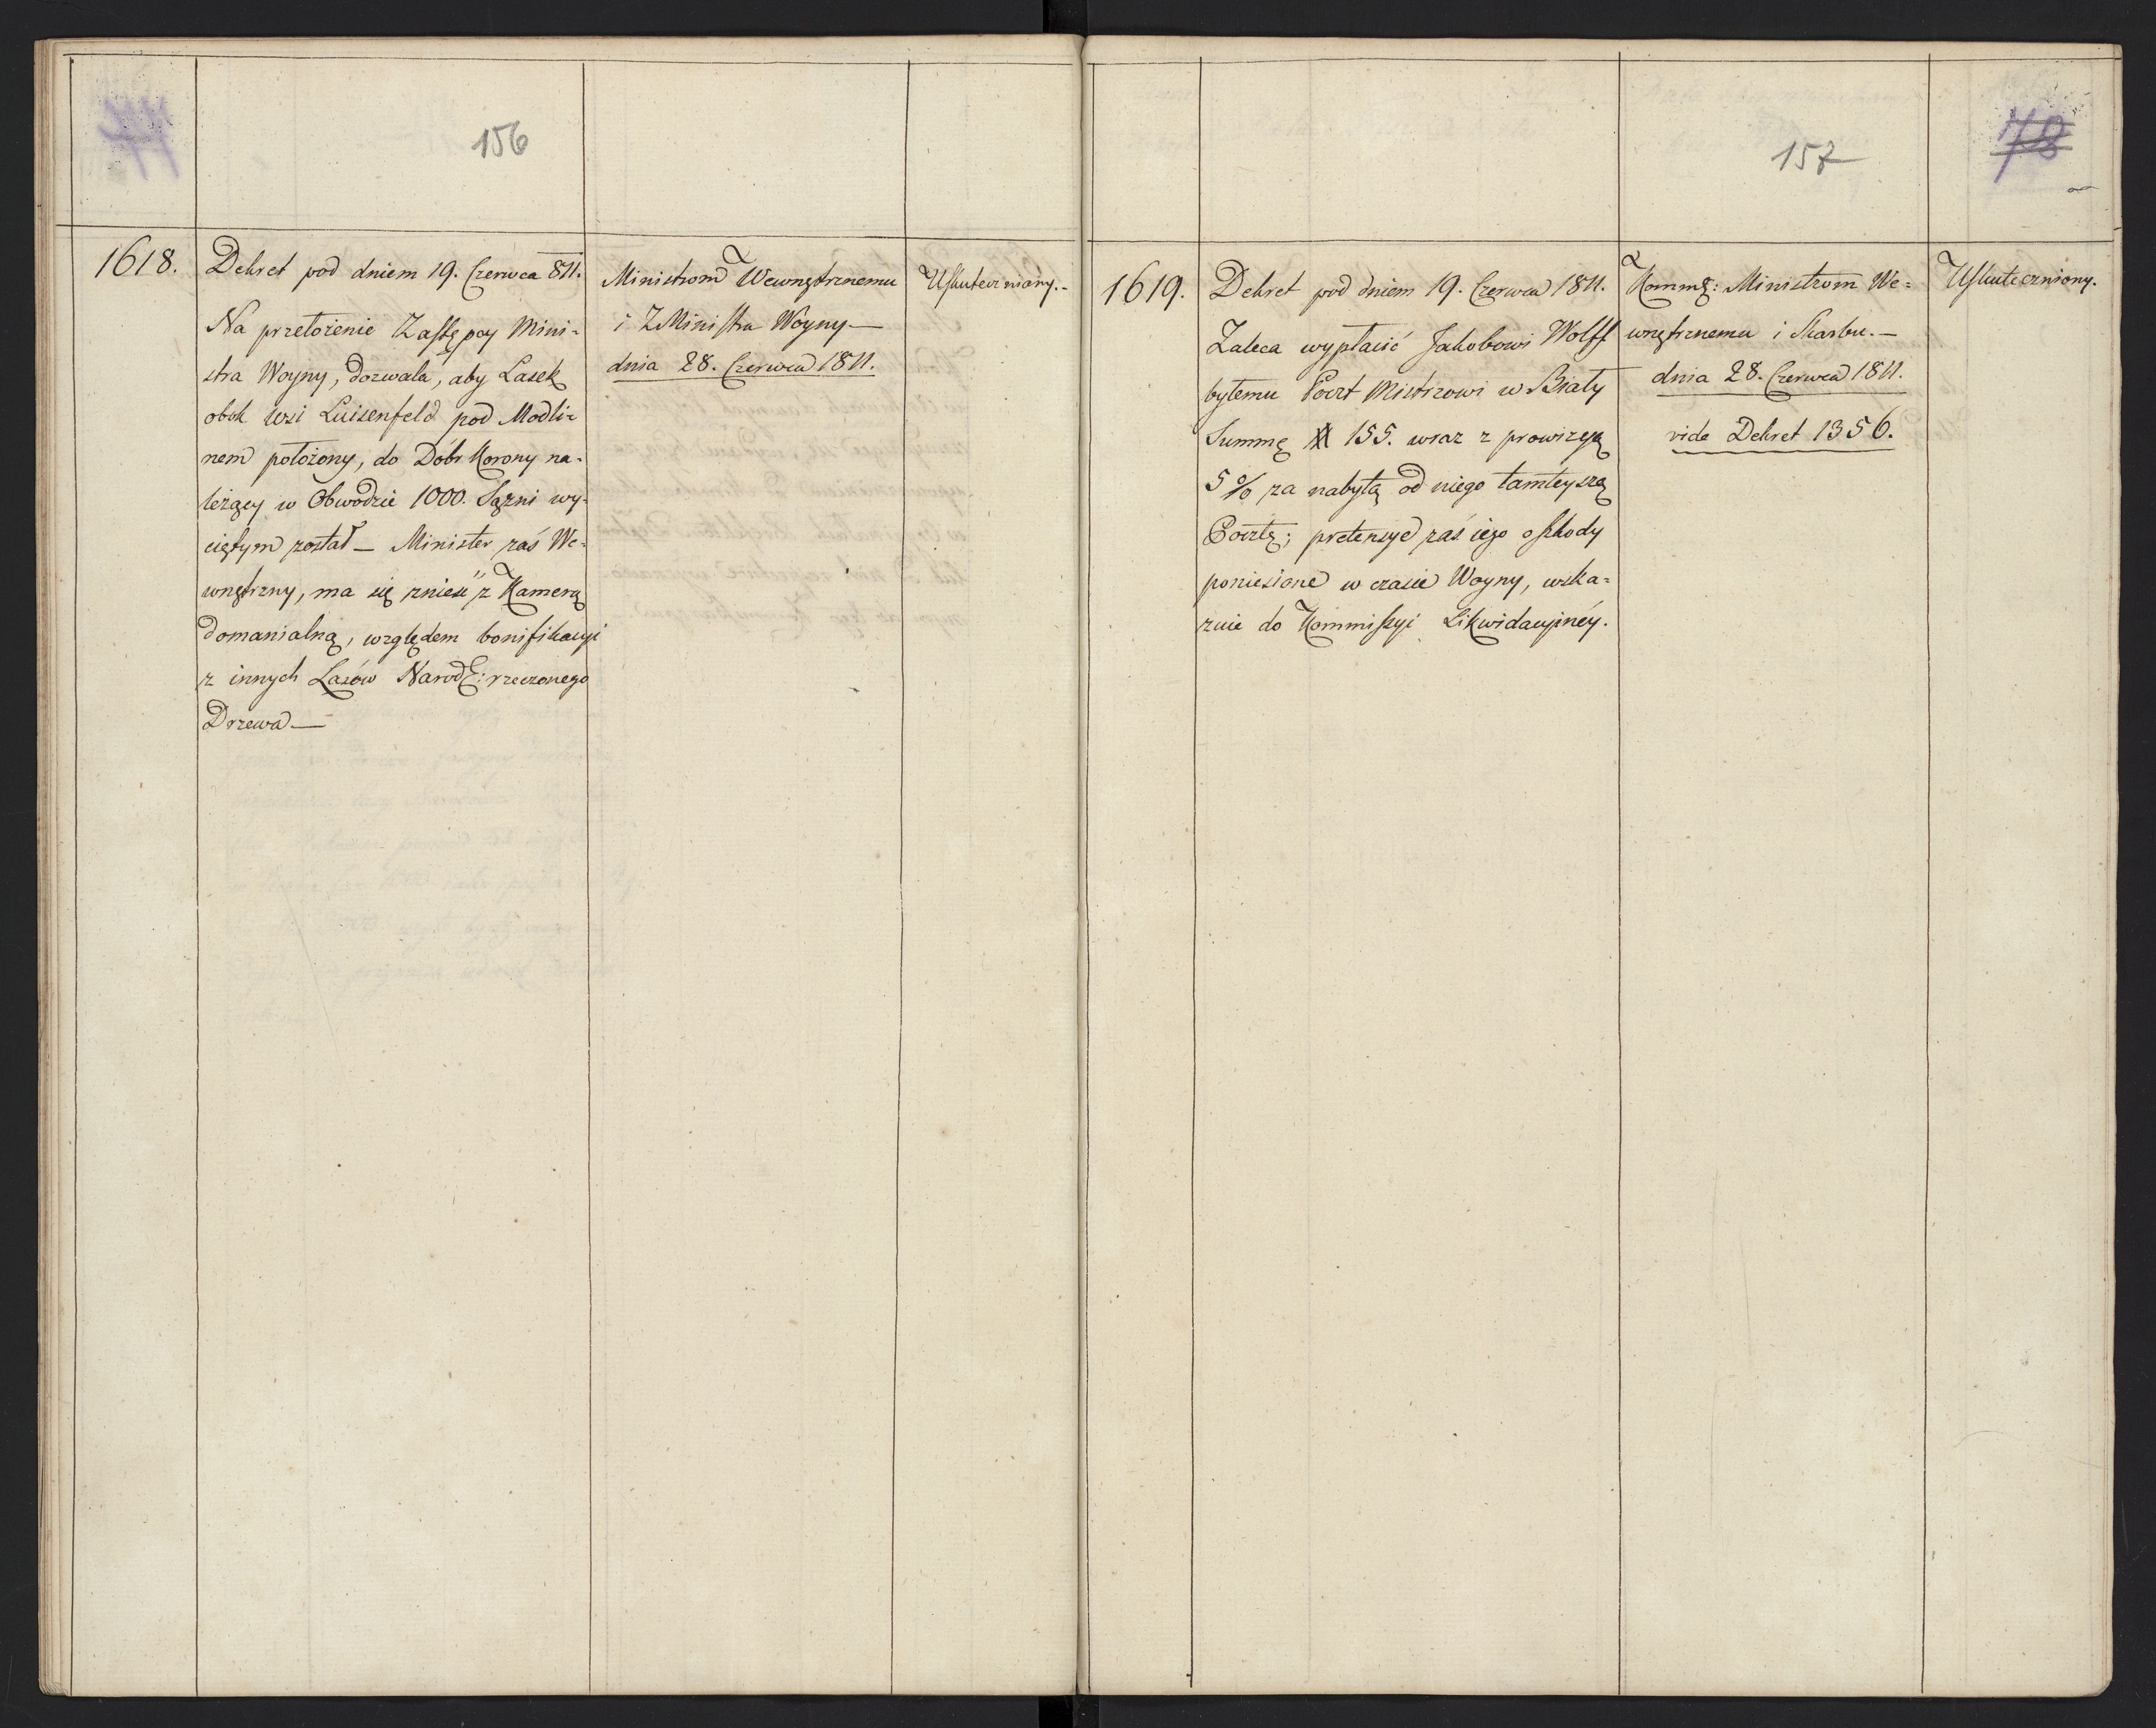 156
1618.
Dekret pod dniem 19. Czerwca 811.
Na przełożenie Zastępcy Mini-
stra Woyny, dozwala, aby Lasek
obok wsi Luisenfeld pod Modli-
nem położony, do Dóbr Korony na-
leżący w Obwodzie 1000. Sążni wy-
ciętym został — Minister zaś We-
wnętrzny, ma się znieść z Kamerą
Domanialną, względem bonifikacyi
z innych Lasów Narod: rzeczonego
Drzewa —
Ministrom Wewnętrznemu
i Z Ministra Woyny —
dnia 28. Czerwca 1811.
Uskuteczniony.-
157
78
1619.
Dekret pod dniem 19. Czerwca 1811.
Zaleca wypłacić Jakobowi Wolff
byłemu Poczt Mistrzowi w Biały
Summę 155. wraz z prowizyą
5 % za nabytą od niego tamteyszą
Pocztę; pretensye zaś iego o szkody
poniesione w czasie Woyny, wska-
zuie do Kommissyi Likwidacyjnéy.
Kommę: Ministrom We-
wnętrznemu i Skarbu. —
dnia 28. Czerwca 1811.
vide Dekret 1356.
Uskuteczniony.